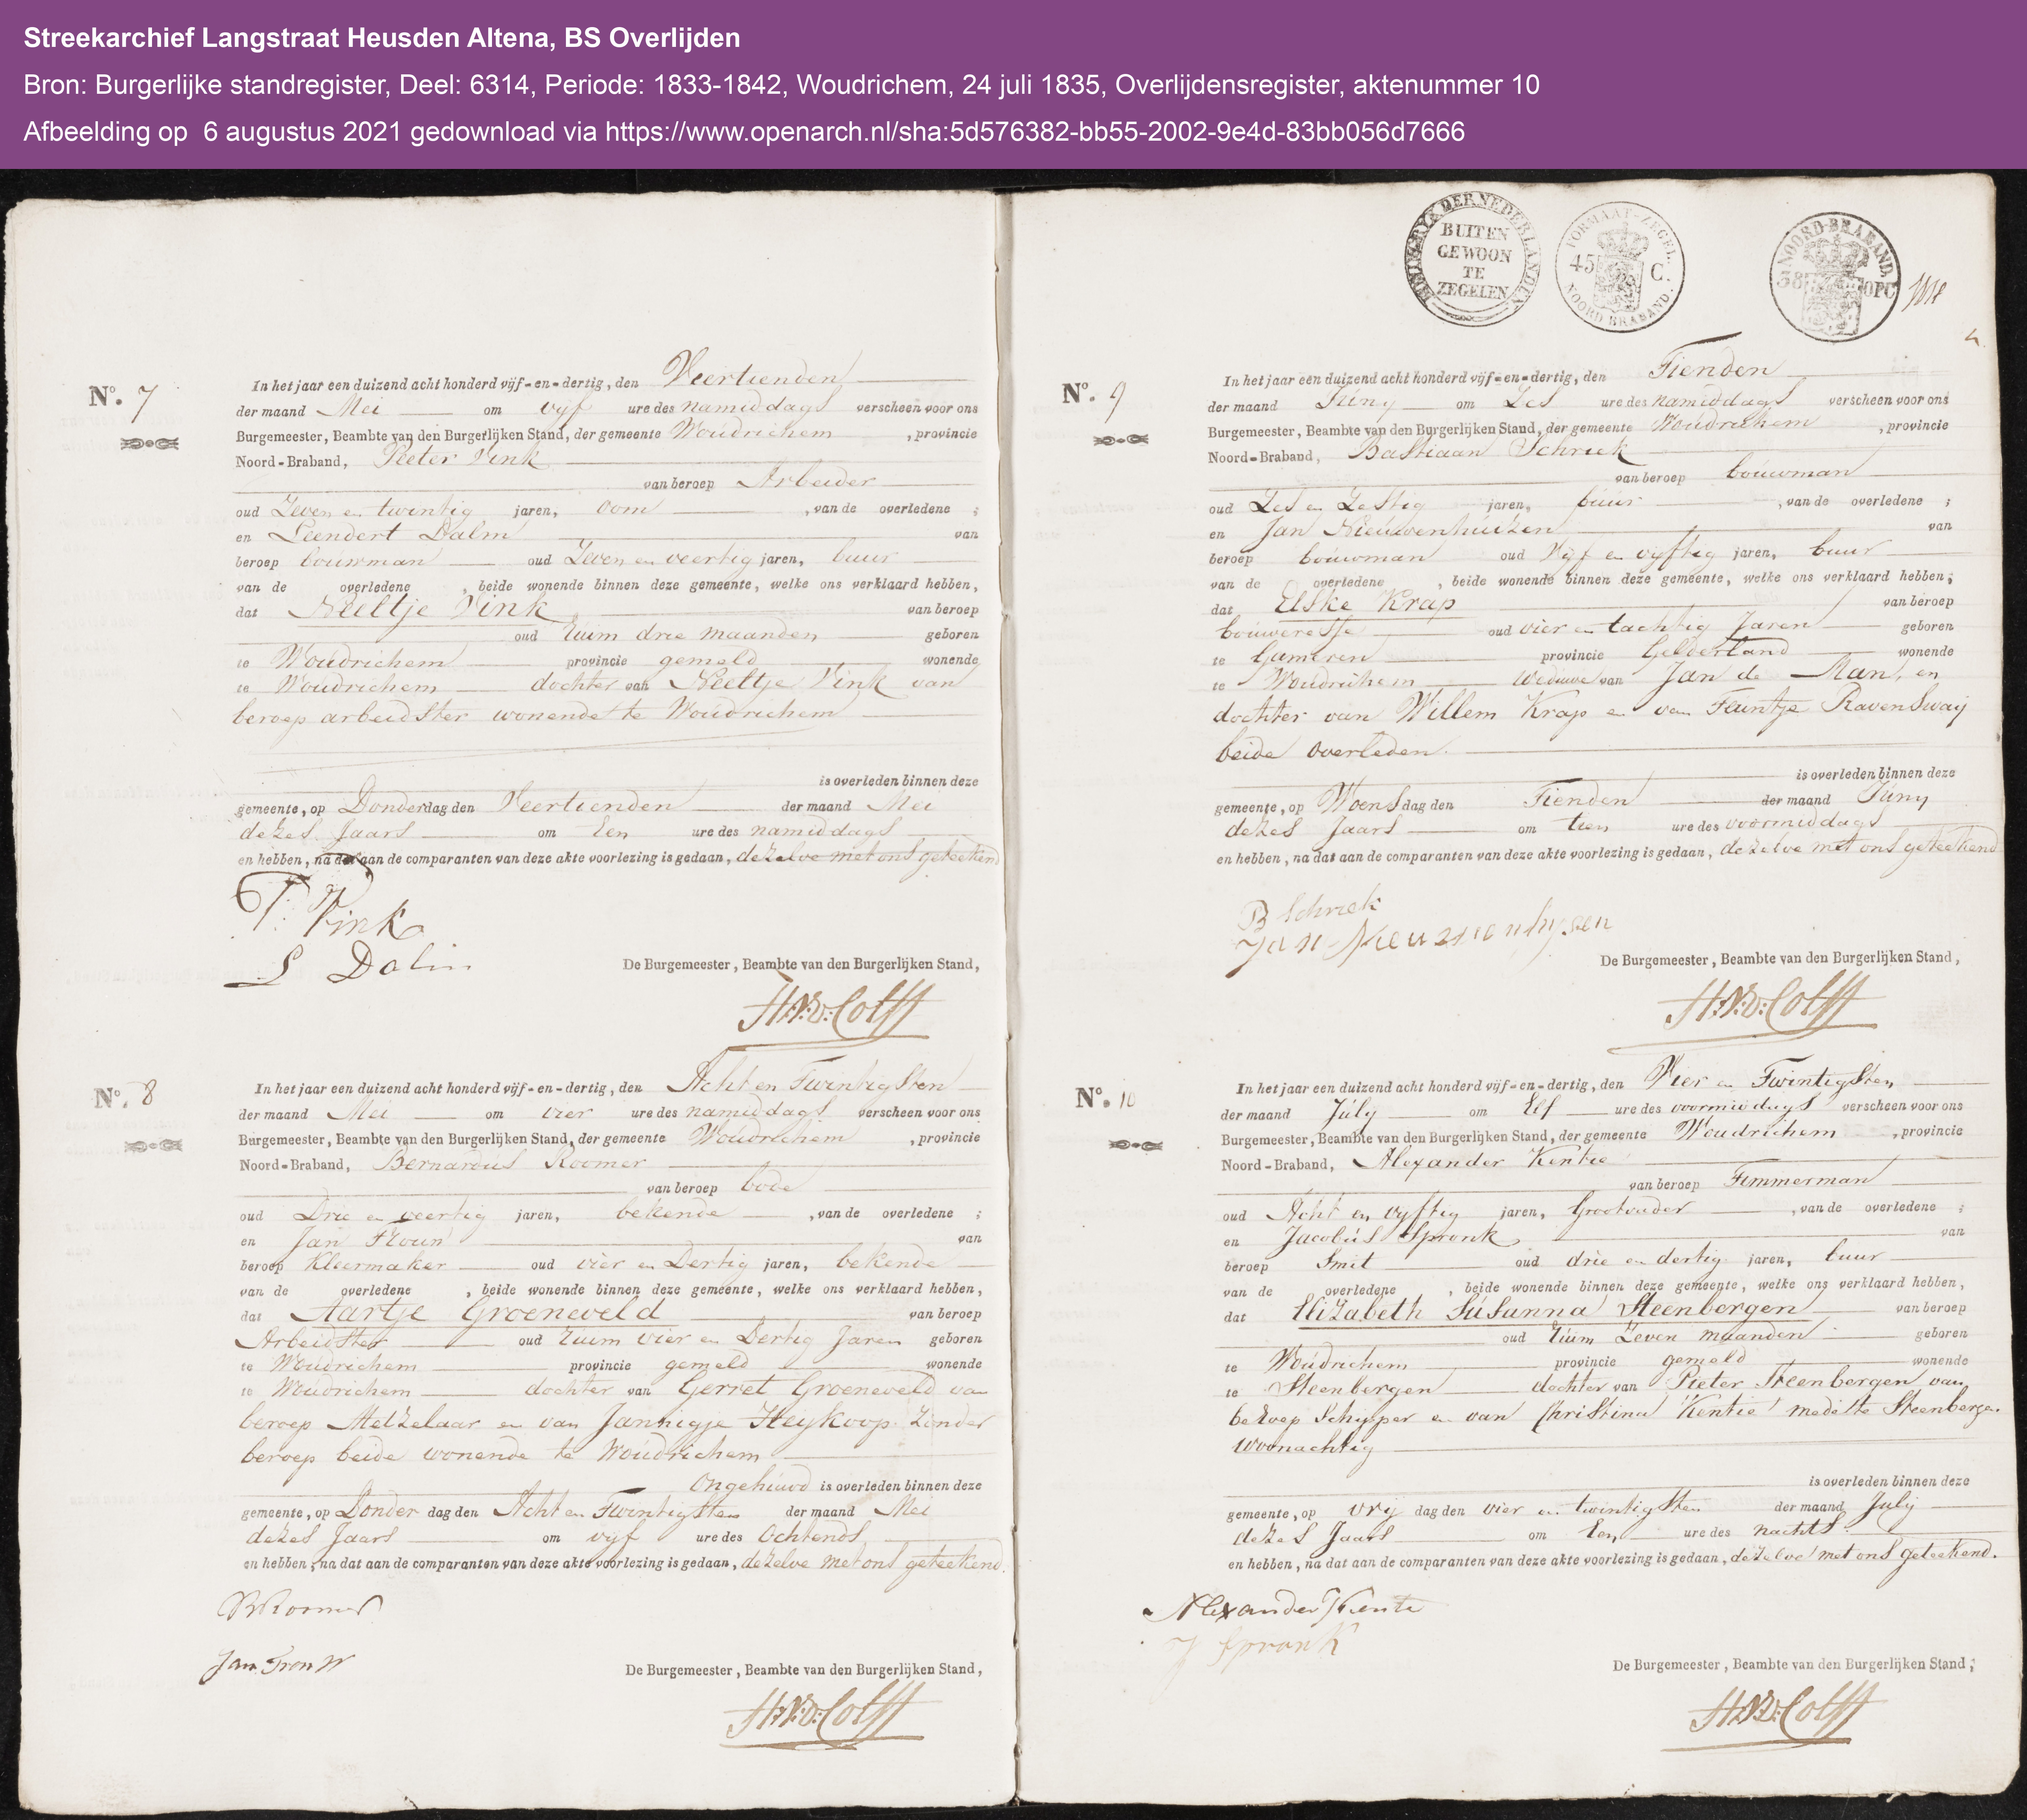 Streekarchief Langstraat Heusden Altena, BS Overlijden
Bron: Burgerlijke standregister, Deel: 6314, Periode: 1833-1842, Woudrichem, 24 juli 1835, Overlijdensregister, aktenummer 10
Afbeelding op 6 augustus 2021 gedownload via https://www.openarch.nl/sha:5d576382-bb55-2002-9e4d-83bb056d7666
No. 7
In het jaar een duizend acht honderd vijf-en-dertig, den Veertienden
der maand Mei om vijf ure des namiddags verscheen voor ons
Burgemeester, Beambte van den Burgerlijken Stand, der gemeente Woudrichem, provincie
Noord-Braband, Peeter Vink
van beroep Arbeider
oud Zeven en twintig jaren, oom, van de overledene ;
en Leendert Dalm van
beroep bouwman oud Zeven en veertig jaren, buur
van de overledene, beide wonende binnen deze gemeente, welke ons verklaard hebben,
dat Neeltje Vink van beroep
oud ruim drie maanden geboren
te Woudrichem provincie gemeld wonende
te Woudrichem dochter van Neeltje Vink van
beroep arbeidster wonende te Woudrichem
is overleden binnen deze
gemeente, op Donderdag den Veertienden der maand Mei
dezes Jaars om Een ure des namiddags
en hebben, na dat aan de comparanten van deze akte voorlezing is gedaan, dezelve met ons geteekend
P. Vink
L Dalm
De Burgemeester, Beambte van den Burgerlijken Stand,
No. 8
In het jaar een duizend acht honderd vijf-en-dertig, den Acht en Twintigsten
der maand Mei om vier ure des namiddags verscheen voor ons
Burgemeester, Beambte van den Burgerlijken Stand, der gemeente Woudrichem, provincie
Noord-Braband, Bernardus Roomer
van beroep bode
oud Drie en veertig jaren, bekende, van de overledene ;
en Jan van
beroep Kleermaker oud vier en Dertig jaren, bekende
van de overledene, beide wonende binnen deze gemeente, welke ons verklaard hebben,
dat Aartje Groeneveld van beroep
Arbeidster oud ruim vier en Dertig Jaren geboren
te Woudrichem provincie gemeld wonende
te Woudrichem dochter van Gerret Groeneveld van
beroep Metzelaar en van Jannigje Heijkoop Zonder
beroep beide wonende te Woudrichem
Ongehuwd is overleden binnen deze
gemeente, op Donder dag den Acht en Twintigsten der maand Mei
dezes Jaars om vijf ure des Ochtends
en hebben, na dat aan de comparanten van deze akte voorlezing is gedaan, dezelve met ons geteekend.
B Roomer
Jan
De Burgemeester, Beambte van den Burgerlijken Stand,
KONINGRYK DER NEDERLANDEN
BUITEN
GEWOON
TE
ZEGELEN
FORMAAT-ZEGEL
45 C.
NOORD BRABAND.
NOORD-BRABAND,
38 OPC
No. 9
In het jaar een duizend acht honderd vijf-en-dertig, den Tienden
der maand Juny om Zes ure des namiddags verscheen voor ons
Burgemeester, Beambte van den Burgerlijken Stand, der gemeente Woudrichem, provincie
Noord-Braband, Bastiaan Schriek
van beroep bouwman
oud Zes en Zestig jaren, buur, van de overledene ;
en Jan Nieuwenhuizen van
beroep bouwman oud Vijf en vijftig jaren, buur
van de overledene, beide wonende binnen deze gemeente, welke ons verklaard hebben,
dat Elske Krap van beroep
bouweresse oud vier en tachtig Jaren geboren
te Gameren provincie Gelderland wonende
te Woudrichem Weduwe van Jan de Man, en
dochter van Willem Krap en van Teuntje Ravenswaij
beide overleden.
is overleden binnen deze
gemeente, op Woensdag den Tienden der maand Juny
dezes Jaars om tien ure des voormiddags
en hebben, na dat aan de comparanten van deze akte voorlezing is gedaan, dezelve met ons geteekend
B Schriek
Jan Nieuwenhysen
De Burgemeester, Beambte van den Burgerlijken Stand,
No. 10
In het jaar een duizend acht honderd vijf-en-dertig, den Vier en Twintigsten
der maand July om Elf ure des voormiddags verscheen voor ons
Burgemeester, Beambte van den Burgerlijken Stand, der gemeente Woudrichem, provincie
Noord-Braband, Alexander Kentie
van beroep Timmerman
oud Acht en vyftig jaren, Grootvader, van de overledene ;
en Jacobus Spronk van
beroep Smit oud drie en dertig jaren, buur
van de overledene, beide wonende binnen deze gemeente, welke ons verklaard hebben,
dat Elizabeth Susanna Steenbergen van beroep
oud ruim Zeven maanden geboren
te Woudrichem provincie gemeld wonende
te Steenbergen dochter van Pieter Steenbergen van
beroep Schipper en van Christina Kentie mede te Steenbergen
woonachtig
is overleden binnen deze
gemeente, op Vrij dag den vier en twintigsten der maand July
dezes Jaars om Een ure des nachts
en hebben, na dat aan de comparanten van deze akte voorlezing is gedaan, dezelve met ons geteekend.
Alexander Kentie
J Spronk
De Burgemeester, Beambte van den Burgerlijken Stand,